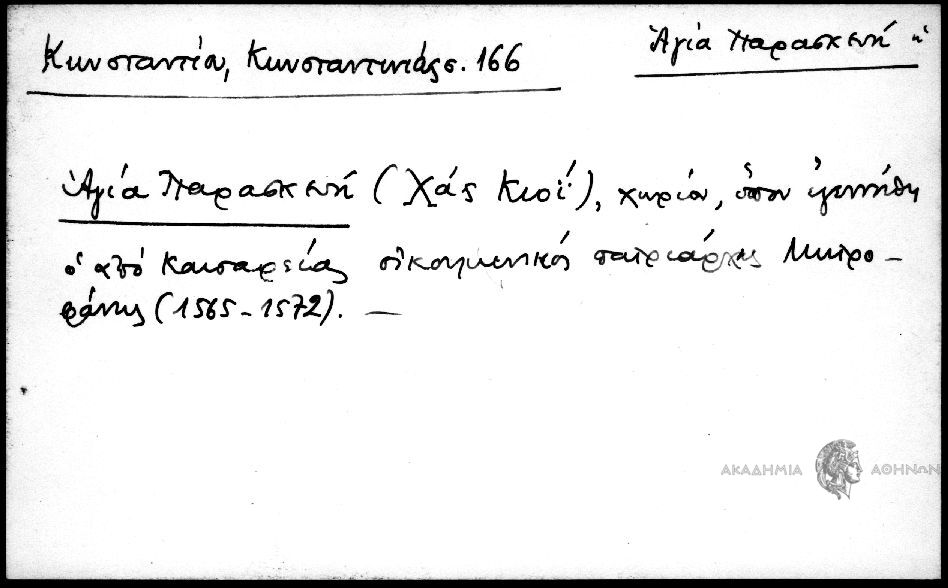 Κωνσταντίου, Κωνσταντινιάς σ. 166
Ἁγία Παρασκευή ἡ
Ἁγία Παρασκευή (Χάς Κιοΐ), χωρίον, ὅπου ἐγεννήθη
ὁ ἀπό Καισαρείας οἰκουμενικός πατριάρχης Μητρο-
φάνης (1565-1572). —
ΑΚΑΔΗΜΙΑ ΑΘΗΝΩΝ